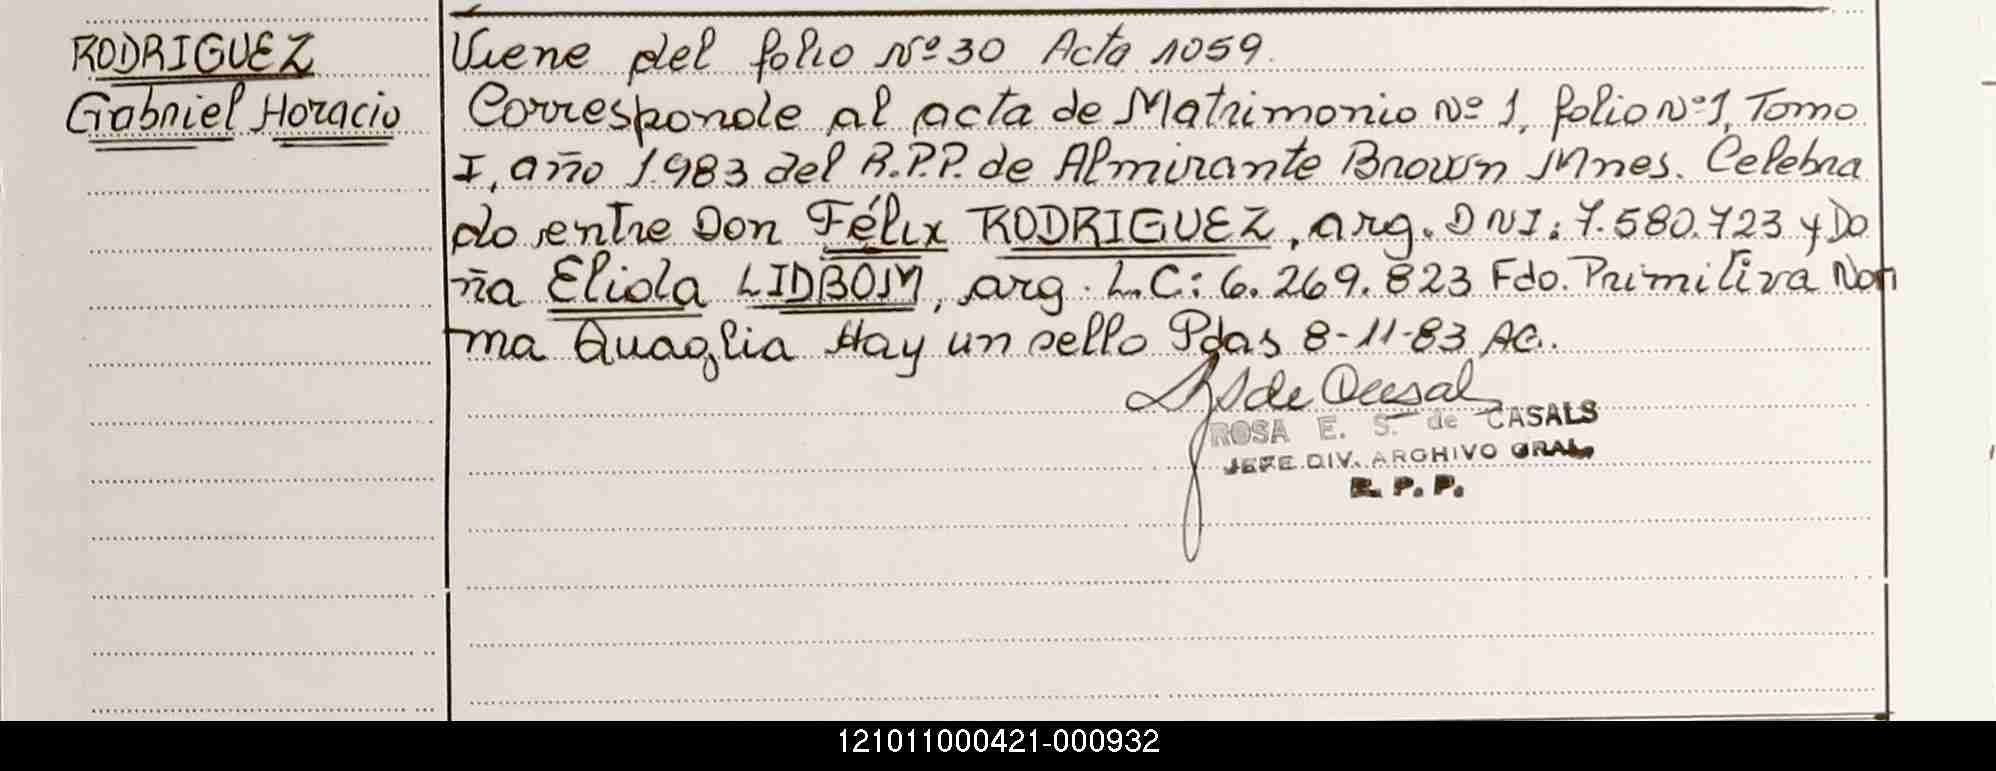 RODRIGUEZ
Gabriel Horacio
Viene del folio Nº 30 Acta 1059.
Corresponde al acta de Matrimonio Nº 1, folio Nº 1, Tomo
I, año 1983 del R.P.P. de Almirante Brown Mnes. Celebra
do entre Don Félix RODRIGUEZ, arg. DNI: 7.580.723 y Do
ña Eliola LIDBOM, arg. L.C: 6.269.823 Fdo. Primitiva Nor
ma Quaglia Hay un sello Pdas 8-11-83 AC.
ROSA E. S. de CASALS
JEFE DIV. ARCHIVO GRAL.
R. P. P.
121011000421-000932